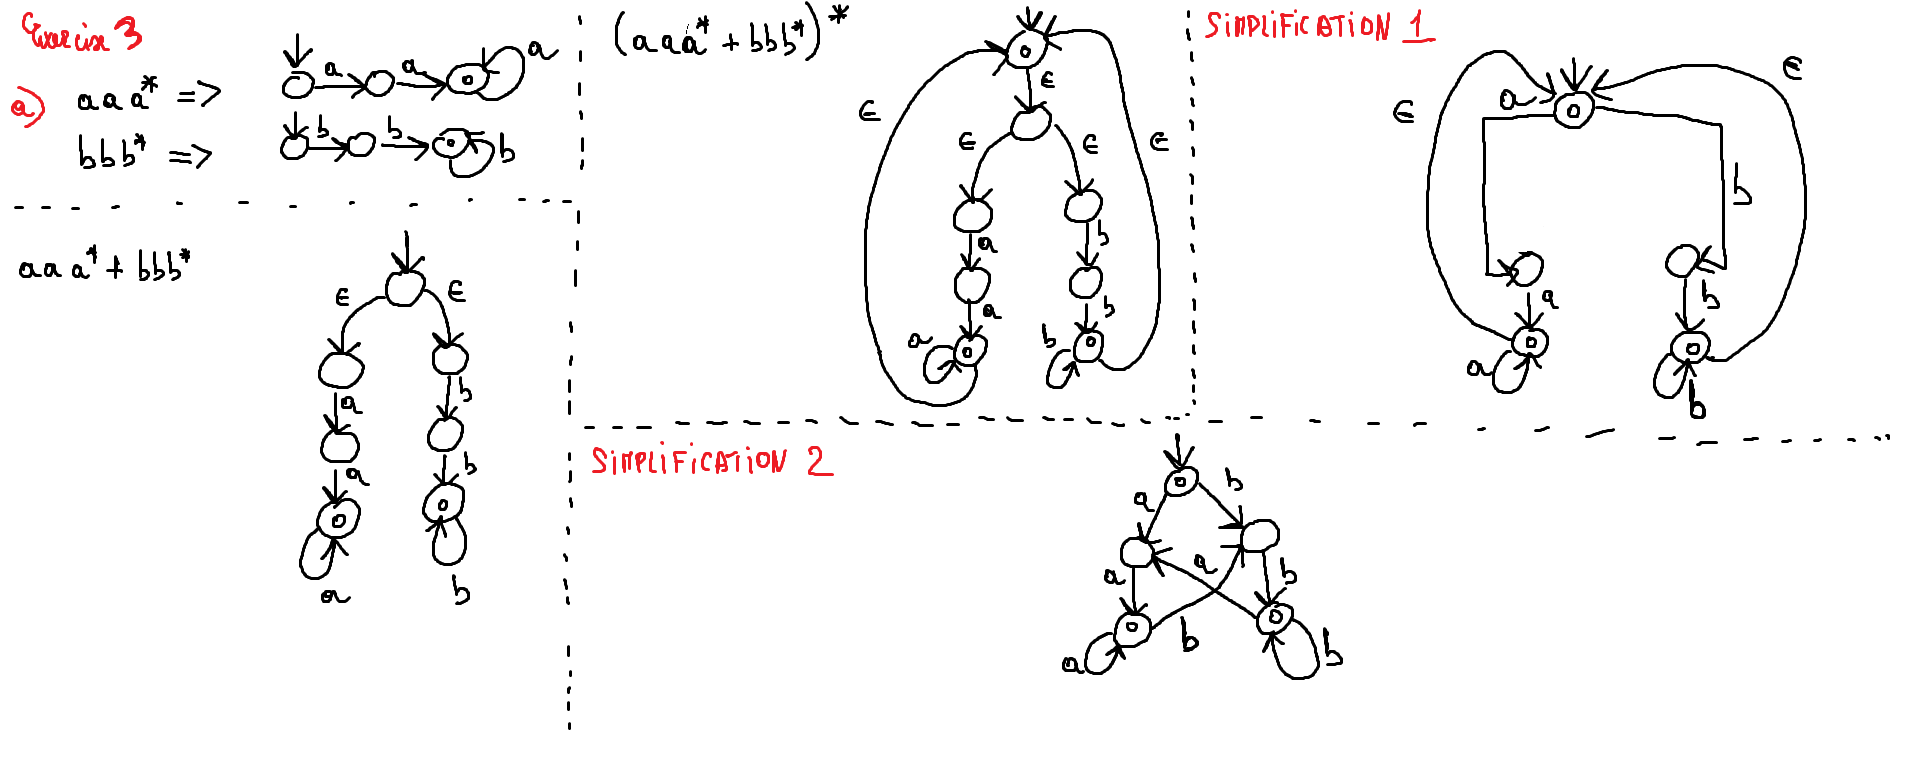 Exercise 3
a) aaa* =>
a a a
bbb* =>
b b b
aaa* + bbb*
ϵ ϵ
a b
a b
a b
(aaa* + bbb*)*
ϵ
ϵ ϵ ϵ ϵ
a b
a b
a b
SIMPLIFICATION 1
ϵ a ϵ
b
a b
a b
SIMPLIFICATION 2
a b
a a b
b
a b